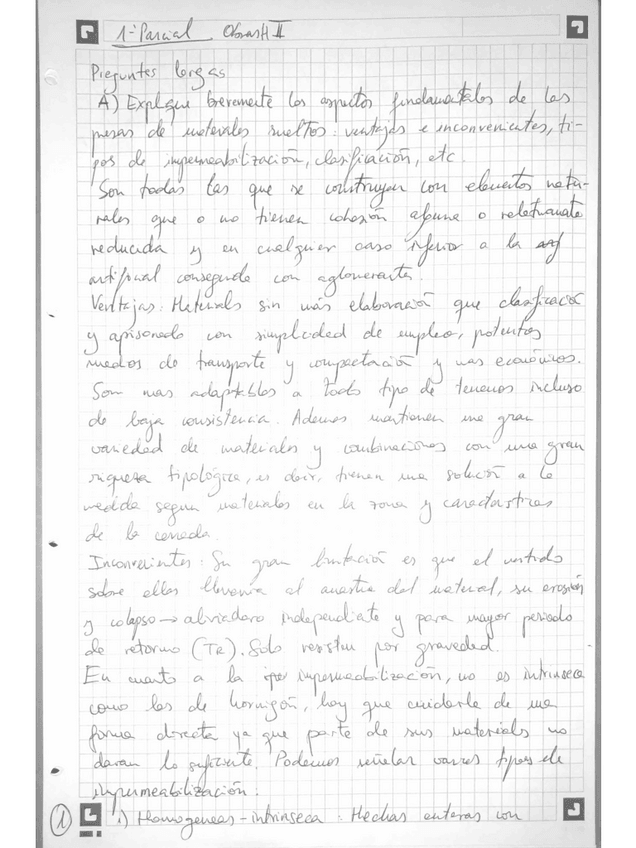 1er Parcial Obras H II
Preguntas largas
A) Explique brevemente los aspectos fundamentales de las
presas de materiales sueltos: ventajas e inconvenientes, ti-
pos de impermeabilización, clasificación, etc.
Son todas las que se construyen con elementos natu-
rales que o no tienen cohesión alguna o relativamente
reducida y en cualquier caso inferior a la
artificial conseguida con aglomerantes.
Ventajas: Materiales sin más elaboración que clasificación
y apisonado con simplicidad de empleo, potentes
medios de transporte y compactación y mas económicos.
Son mas adaptables a todo tipo de terrenos incluso
de baja consistencia. Ademas mantienen una gran
variedad de materiales y combinaciones con una gran
riqueza tipológica, es decir, tienen una solución a la
medida segun materiales en la zona y características
de la cerrada.
Inconvenientes: Su gran limitación es que el vertido
sobre ellas llevaria al arrastre del material, su erosión
y colapso → aliviadero independiente y para mayor periodo
de retorno (Tr). Solo resisten por gravedad.
En cuanto a la impermeabilización, no es intrinseca
como las de hormigón, hay que cuidarla de una
forma directa ya que parte de sus materiales no
daran lo suficiente. Podemos señalar varios tipos de
impermeabilización:
i) Homogeneas - intrinseca: Hechas enteras con
1